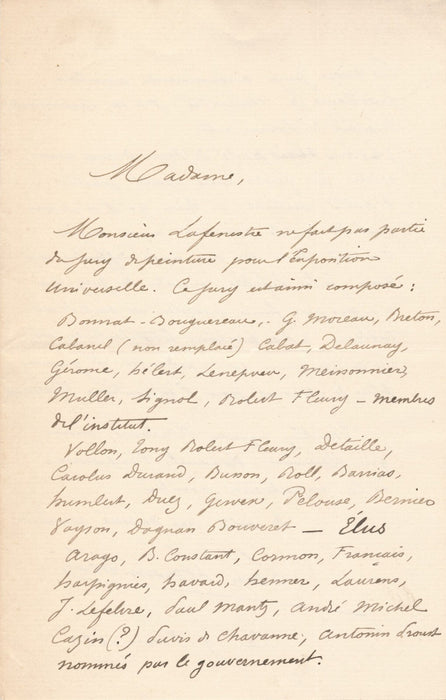 Madame,
Monsieur Lafenestre ne fait pas partie
du jury de peinture pour l'Exposition
Universelle. Ce jury est ainsi composé :
Bonnat - Bouguereau, G. Moreau, Breton,
Cabanel (non remplacé) Cabat, Delaunay,
Gérome, Hébert, Lenepveu, Meissonnier,
Muller, Signol, Robert Fleury - membres
de l'institut.
Vollon, Tony Robert Fleury, Detaille,
Carolus Durand, Busson, Roll, Barrias,
Humbert, Duez, Gervex, Pelouse, Bernier
Vayson, Dagnan Bouveret - Élus
Arago, B. Constant, Cormon, Français,
Harpignies, Havard, Henner, Laurens,
J. Lefebvre, Paul Mantz, André Michel
Cazin (?) Puvis de Chavanne, Antonin Proust
nommés par le gouvernement.